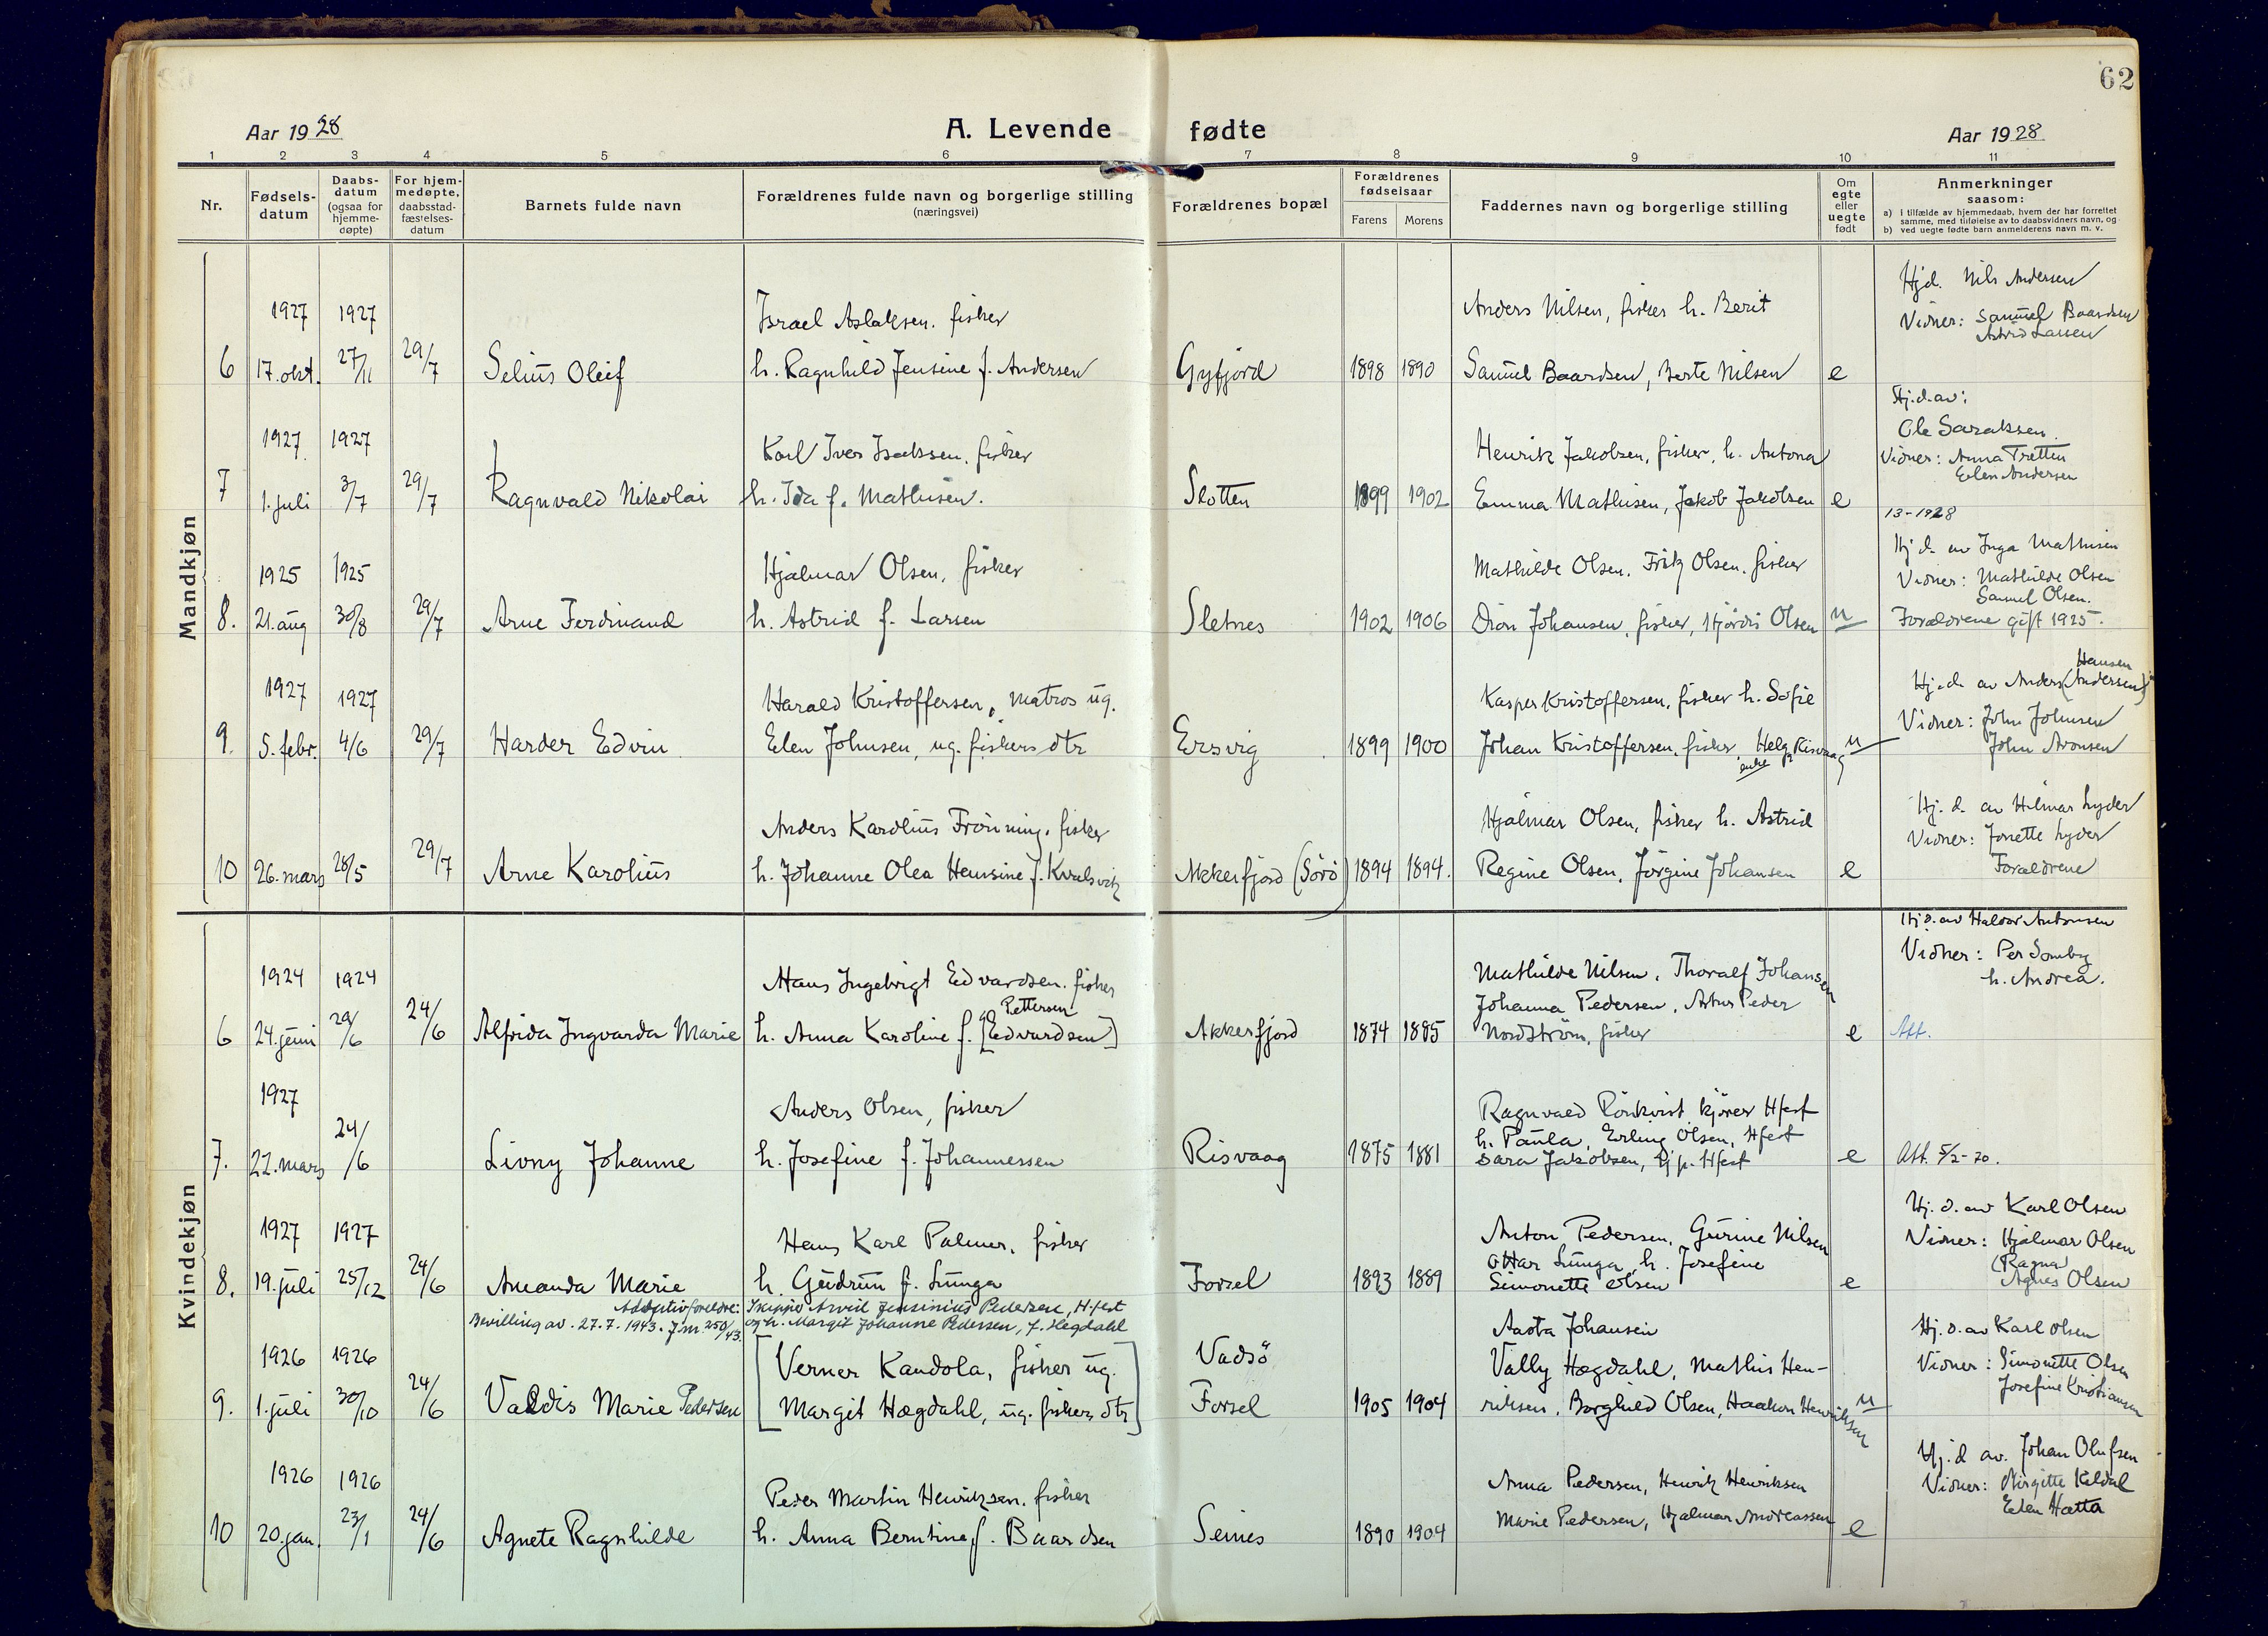 62
Aar 1928
A. Levende fødte
Aar 1928
1 2 3 4 5 6 7 8 9 10 11
Nr.
Fødsels-
datum
Daabs-
datum
(ogsaa for
hjemme-
døpte)
For hjem-
medøpte,
daabsstad-
fæstelses-
datum
Barnets fulde navn
Forældrenes fulde navn og borgerlige stilling
(næringsvei)
Forældrenes bopæl
Forældrenes
fødselsaar
Farens
Morens
Faddernes navn og borgerlige stilling
Om
egte
eller
uegte
født
Anmerkninger
saasom:
a) i tilfælde av hjemmedaab, hvem der har forrettet
samme, med tilføielse av to daabsvidners navn, og
b) ved uegte fødte barn anmelderens navn m. v.
Mandkjøn
6 1927 17. okt. 1927 27/11 29/7 Selius Oleif
Israel Aslaksen. fisker
h. Ragnhild Jensine f. Andersen
Gyfjord 1898 1890
Anders Nilsen, fisker h. Berit
Samuel Baardsen, Berte Nilsen e
Hjd. Nils Andersen
Vidner: Samuel Baardsen
Astrid Larsen
7 1927 1. juli 1927 3/7 29/7 Ragnvald Nikolai
Karl Iver Isaksen. fisker
h. Ida f. Mathisen.
Slotten 1899 1902
Henrik Jakobsen, fisker, h. Antona
Emma Mathisen, Jakob Jakobsen e
Hj. d. av:
Ole Saraksen.
Vidner: Anna Tretten
Elen Andersen
13-1928
8. 1925 21. aug 1925 30/8 29/7 Arne Ferdinand
Hjalmar Olsen, fisker
h. Astrid f. Larsen
Sletnes 1902 1906
Mathilde Olsen. Fritz Olsen. fisker
Dion Johansen, fisker, Hjørdis Olsen u
Hj d. av Inga Mathisen
Vidner: Mathilde Olsen
Samuel Olsen.
Forældrene gift 1925.
9. 1927 5. febr. 1927 4/6 29/7 Harder Edvin
Harald Kristoffersen, matros ug.
Elen Johnsen, ug. fiskers dtr
Ersvig 1899 1900
Kasper Kristoffersen, fisker h. Sofie
Johan Kristoffersen, fisker, Helg. Risvaag u
enke
Hansen
Hj. d. av Anders (Andersen)
Vidner: John Johnsen
John Aronsen
10 26. mars 28/5 29/7 Arne Karolius
Anders Karolius Frönning. fisker
h. Johanne Olea Hensine f. Kvalsvik
Akkerfjord (Sörö) 1894 1894.
Hjalmar Olsen, fisker h. Astrid
Regine Olsen, Jörgine Johansen e
Hj. d. av Hilmar Lyder
Vidner: Jonette Lyder
Forældrene
Kvindekjøn
6 1924 24. juni 1924 29/6 24/6 Alfrida Ingvarda Marie
Hans Ingebrigt Edvardsen. fisker
Pettersen
h. Anna Karoline f. [Edvardsen]
Akkerfjord 1874 1885
Mathilde Nilsen, Thoralf Johansen
Johanna Pedersen, Artur Peder
Nordström, fisker e
Hj. d. av Haldor Antonsen
Vidner: Per Somby
h. Andrea.
Att.
7. 1927 22. mars 24/6 Livny Johanne
Anders Olsen, fisker
h. Josefine f. Johannessen
Risvaag 1875 1881
Ragnvald Rönkvist kjörer Hfest
h. Paula, Erling Olsen, Hfest
Sara Jakobsen, tj. p. Hfest e
Att. 5/2-70.
8. 1927 19. juli 1927 25/12 24/6 Amanda Marie
Hans Karl Palmer, fisker
h. Gudrun f. Lunga
Forsel 1893 1889
Anton Pedersen, Gurine Nilsen
Ottar Lunga, h. Josefine
Simonette Olsen e
Hj. d. av Karl Olsen
Vidner: Hjalmar Olsen
(Ragna)
Agnes Olsen
Adoptivforeldre: Skipper Arvid Jensinius Pedersen, H.fest
Bevilling av. 27.7.1943. J.nr. 250/43. og h. Margit Johanne Pedersen, f. Hegdahl
9. 1926 1. juli 1926 30/10 24/6 Valdis Marie Pedersen
[Verner Kandola, fisker ug.
Margit Hægdahl, ug. fiskers dtr]
Vadsö
Forsel 1905 1904
Aasta Johansen
Vally Hægdahl, Mathis Hen-
riksen, Borghild Olsen, Haakon Henriksen u
Hj. d. av Karl Olsen
Vidner: Simonette Olsen
Josefine Kristiansen
10 1926 20. jan. 1926 23/1 24/6 Agnete Ragnhilde
Peder Martin Henriksen. fisker
h. Anna Berntine f. Baardsen
Seines 1890 1904
Anna Pedersen, Henrik Henriksen
Marie Pedersen, Hjalmar Andreassen e
Hj. d av. Johan Olufsen
Vidner: Birgitte Keldal
Elen Hætta